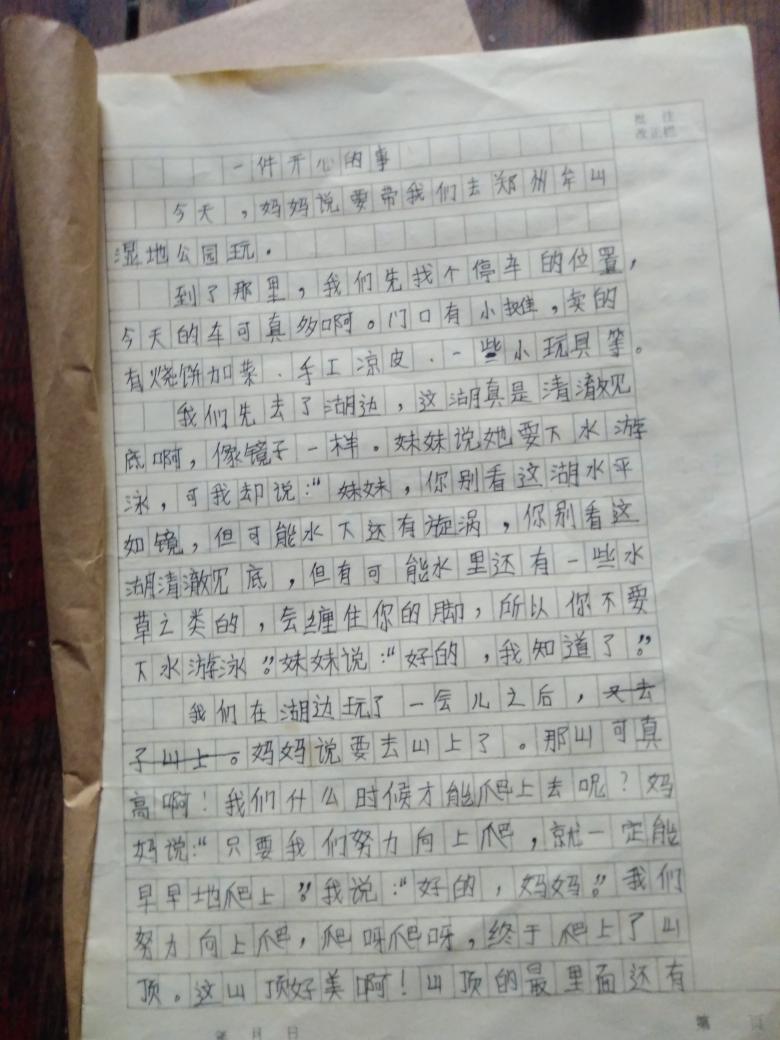 批 注
改正栏
一件开心的事
今天，妈妈说要带我们去郑州牟山
湿地公园玩。
到了那里，我们先找个停车的位置，
今天的车可真多啊。门口有小摊，卖的
有烧饼加菜、手工凉皮、一些小玩具等。
我们先去了湖边，这湖真是清澈见
底啊，像镜子一样。妹妹说她要下水游
泳，可我却说：“妹妹，你别看这湖水平
如镜，但可能水下还有旋涡，你别看这
湖清澈见底，但有可能水里还有一些水
草之类的，会缠住你的脚，所以你不要
下水游泳。”妹妹说：“好的，我知道了。”
我们在湖边玩了一会儿之后，又去
了山上。妈妈说要去山上了。那山可真
高啊！我们什么时候才能爬上去呢？妈
妈说：“只要我们努力向上爬，就一定能
早早地爬上。”我说：“好的，妈妈。”我们
努力向上爬，爬呀爬呀，终于爬上了山
顶。这山顶好美啊！山顶的最里面还有
年 月 日
第 页